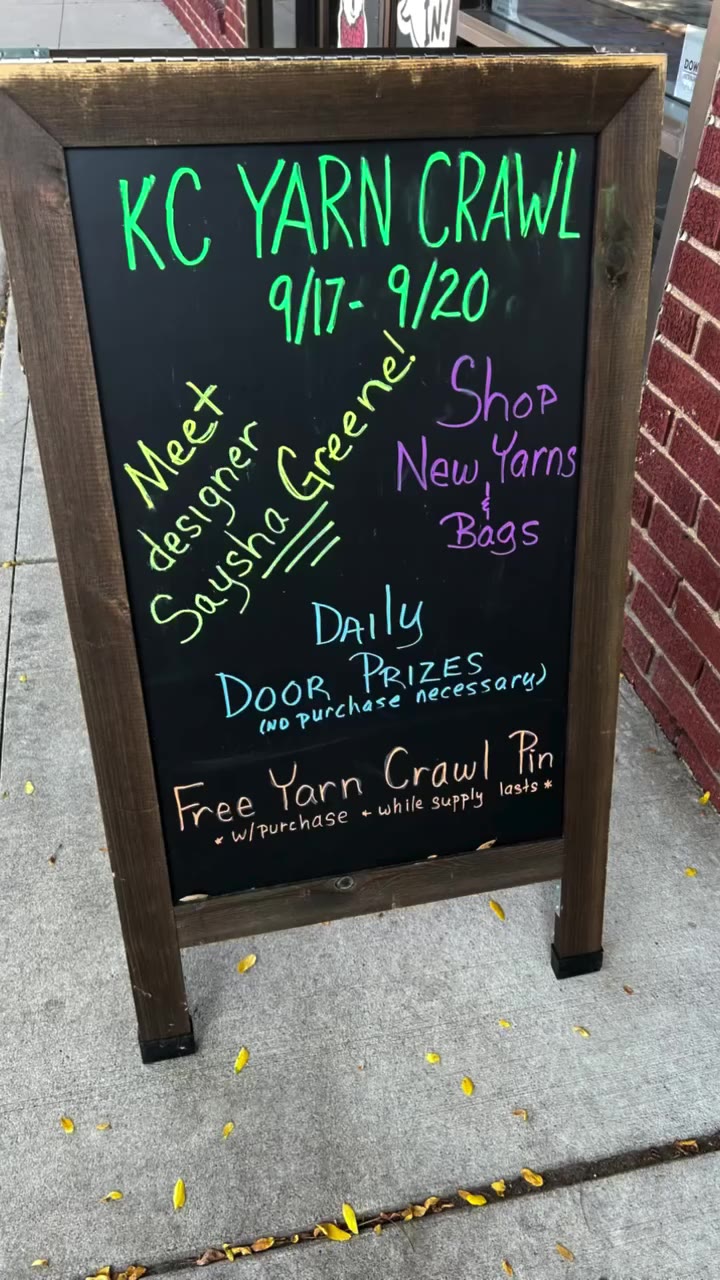 IN!
DOW
KC YARN CRAWL
9/17- 9/20
Meet
designer
Saysha Greene!
Shop
New Yarns
&
Bags
Daily
Door Prizes
(no purchase necessary)
Free Yarn Crawl Pin
* w/purchase * while supply lasts *